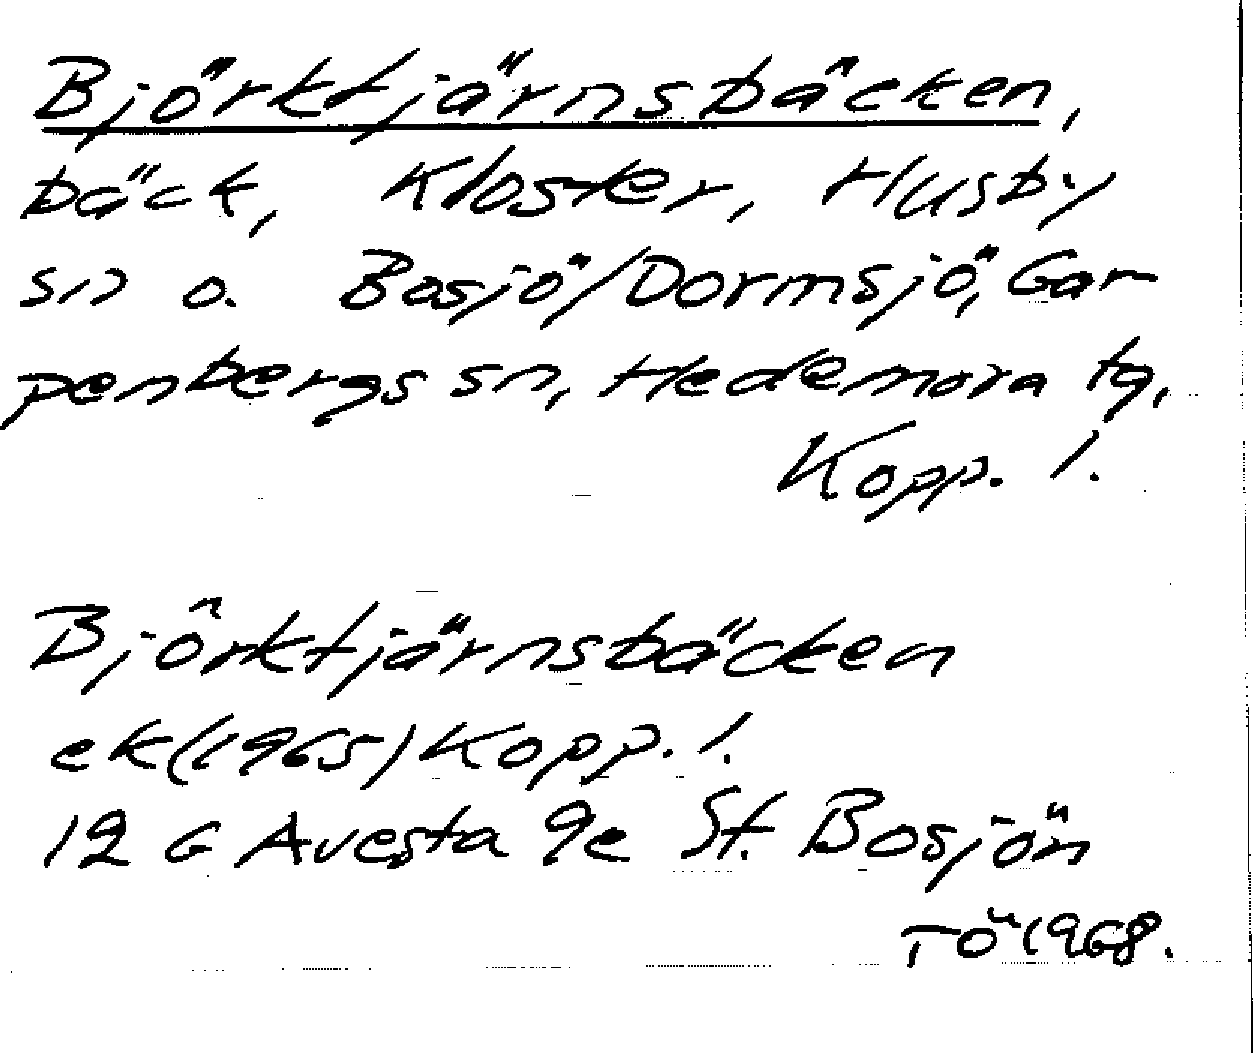 Björktjärnsbäcken,
bäck, Kloster, Husby
sn o. Bosjö/Dormsjö, Gar-
penbergs sn, Hedemora tg,
Kopp. l.
Björktjärnsbäcken
ek(1965) Kopp. l.
12 G Avesta 9e St. Bosjön
TÖ 1968.